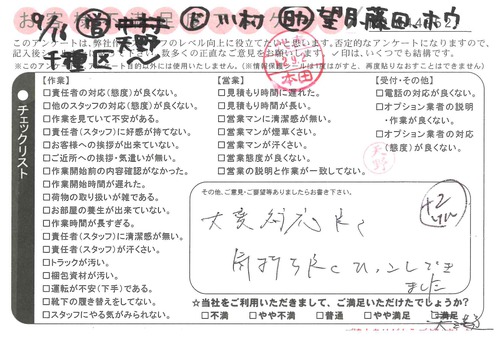 9/16 営 天野 ド 川村 助 望月 藤田 ホウ
千種区
このアンケートは、弊社
のレベル向上に役立てたいと思います。否定的なアンケートになりますので、
記入後
数多くの正直なご意見をお願いします。✓印は、いくつでも結構です。
チェックリスト
【作業】
□責任者の対応(態度)が良くない。
□他のスタッフの対応(態度)が良くない。
□作業を見ていて不安がある。
□責任者(スタッフ)に好感が持てない。
□お客様への挨拶が出来ていない。
□ご近所への挨拶・気遣いが無い。
□作業開始前の内容確認がなかった。
□作業開始時間が遅れた。
□荷物の取り扱いが雑である。
□お部屋の養生が出来ていない。
□作業時間が長すぎる。
□責任者(スタッフ)に清潔感が無い。
□責任者(スタッフ)が汗くさい。
□トラックが汚い。
□梱包資材が汚い。
□運転が不安(下手)である。
□靴下の履き替えをしてない。
□スタッフにやる気がみられない。
【営業】
□見積もり時間に遅れた。
□見積もり時間が長い。
□営業マンに清潔感が無い。
□営業マンが煙草くさい。
□営業マンが汗くさい。
□営業態度が良くない。
□営業の説明と作業が一致してない。
【受付・その他】
□電話の対応が良くない。
□オプション業者の説明
・作業が良くない。
□オプション業者の対応
(態度)が良くない。
本田
天野
その他、ご意見・ご要望等ありましたらお書き下さい。
大変対応良く
気持ち良くひっこしでき
ました
☆当社をご利用いただきまして、ご満足いただけたでしょうか?
□不満 □やや不満 □普通 □やや満足 □満足